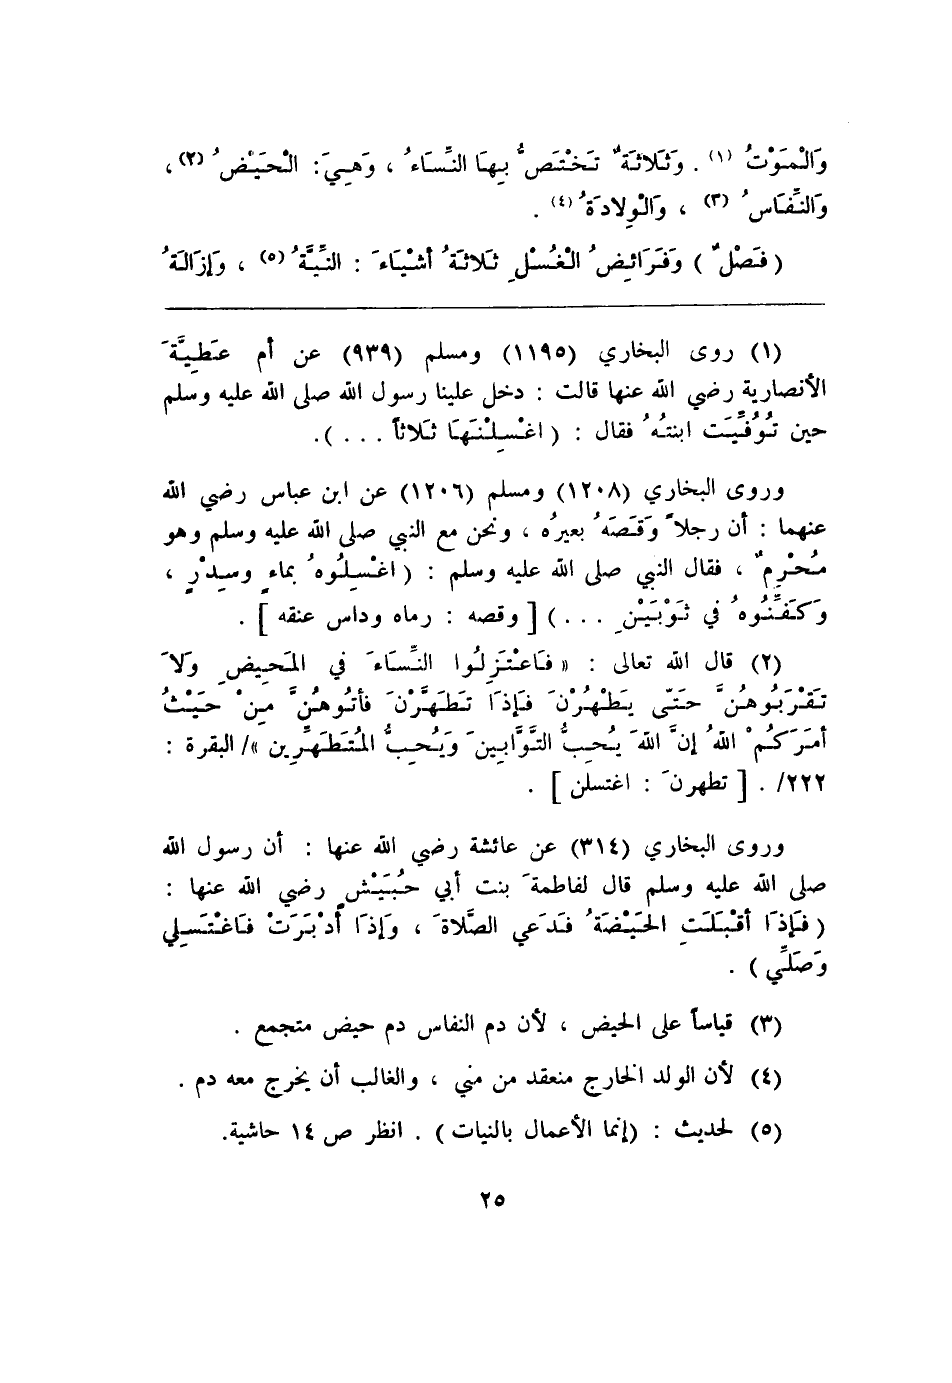 وَالْمَوْتُ (١) . وَثَلاثَةٌ تَخْتَصُّ بِهَا النِّسَاءُ ، وَهِيَ: الْحَيْضُ (٢) ،
وَالنِّفَاسُ (٣) ، وَالْوِلادَةُ (٤) .
( فَصْلٌ ) وَفَرَائِضُ الْغُسْلِ ثَلاثَةُ أشْيَاءَ : النِّيَّةُ (٥) ، وَإزَالَةُ
(١) روى البخاري (١١٩٥) ومسلم (٩٣٩) عن أم عَطِيَّةَ
الأنصارية رضي الله عنها قالت : دخل علينا رسول الله صلى الله عليه وسلم
حين تُوُفِّيَت ابنتُهُ فقال : ( اغْسِلْنَهَا ثَلاثاً . . . ).
وروى البخاري (١٢٠٨) ومسلم (١٢٠٦) عن ابن عباس رضي الله
عنهما : أن رجلاً وَقَصَهُ بعيرُه ، ونحن مع النبي صلى الله عليه وسلم وهو
مُحْرِمٌ ، فقال النبي صلى الله عليه وسلم : ( اغْسِلُوهُ بماءٍ وسِدْرٍ ،
وَكَفِّنُوهُ في ثَوْبَيْنِ . . . ) [ وقصه : رماه وداس عنقه ] .
(٢) قال الله تعالى : « فَاعْتَزِلُوا النِّسَاءَ في المَحِيضِ وَلاَ
تَقْرَبُوهُنَّ حَتّى يَطْهُرْنَ فَإذَا تَطَهَّرْنَ فأتُوهُنَّ مِنْ حَيْثُ
أمَرَكُمْ اللهُ إنَّ اللهَ يُحِبُّ التَّوَّابِينَ وَيُحِبُّ المُتَطَهِّرِين »/ البقرة :
٢٢٢/ . [ تطهرنَ : اغتسلن ] .
وروى البخاري (٣١٤) عن عائشة رضي الله عنها : أن رسول الله
صلى الله عليه وسلم قال لفاطمةَ بنت أبي حُبَيْشٍ رضي الله عنها :
( فَإذَا أقْبَلَتِ الحَيْضَةُ فَدَعي الصَّلاةَ ، وَإذَا أدْبَرَتْ فَاغْتَسِلِي
وَصَلِّي ) .
(٣) قياساً على الحيض ، لأن دم النفاس دم حيض متجمع .
(٤) لأن الولد الخارج منعقد من مني ، والغالب أن يخرج معه دم .
(٥) لحديث : (إنما الأعمال بالنيات ) . انظر ص ١٤ حاشية.
٢٥